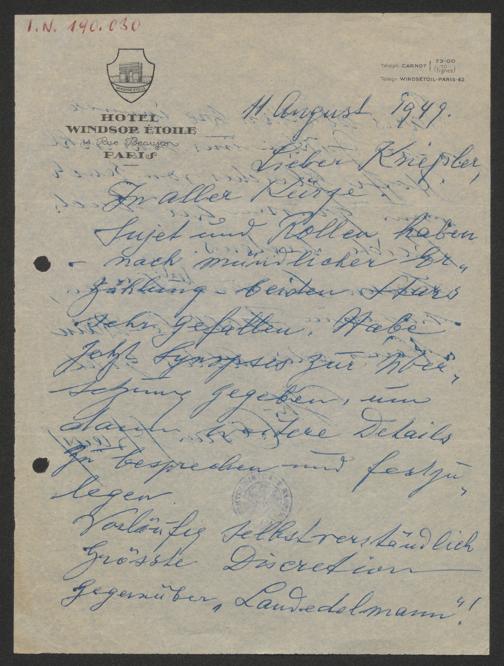 I.N. 190.030
Teleph. CARNOT 73-00
(lignes)
Telegr. WINDSÉTOIL-PARIS-42
HOTEL
WINDSOR ÉTOILE
14 Rue Beaujon
PARIS
11 August 1949.
Lieber Kriepler,
In aller Kürze
Sujet und Rollen haben
- nach mündlicher Er„
zählung - beiden Stars
sehr gefallen. Habe
jetzt Synopsis zur Über„
setzung gegeben, um
dann weitere Details
zu besprechen und festzu„
legen.
Vorläufig selbstverständlich
Grösste Discretion
gegenüber „Landedelmann"!